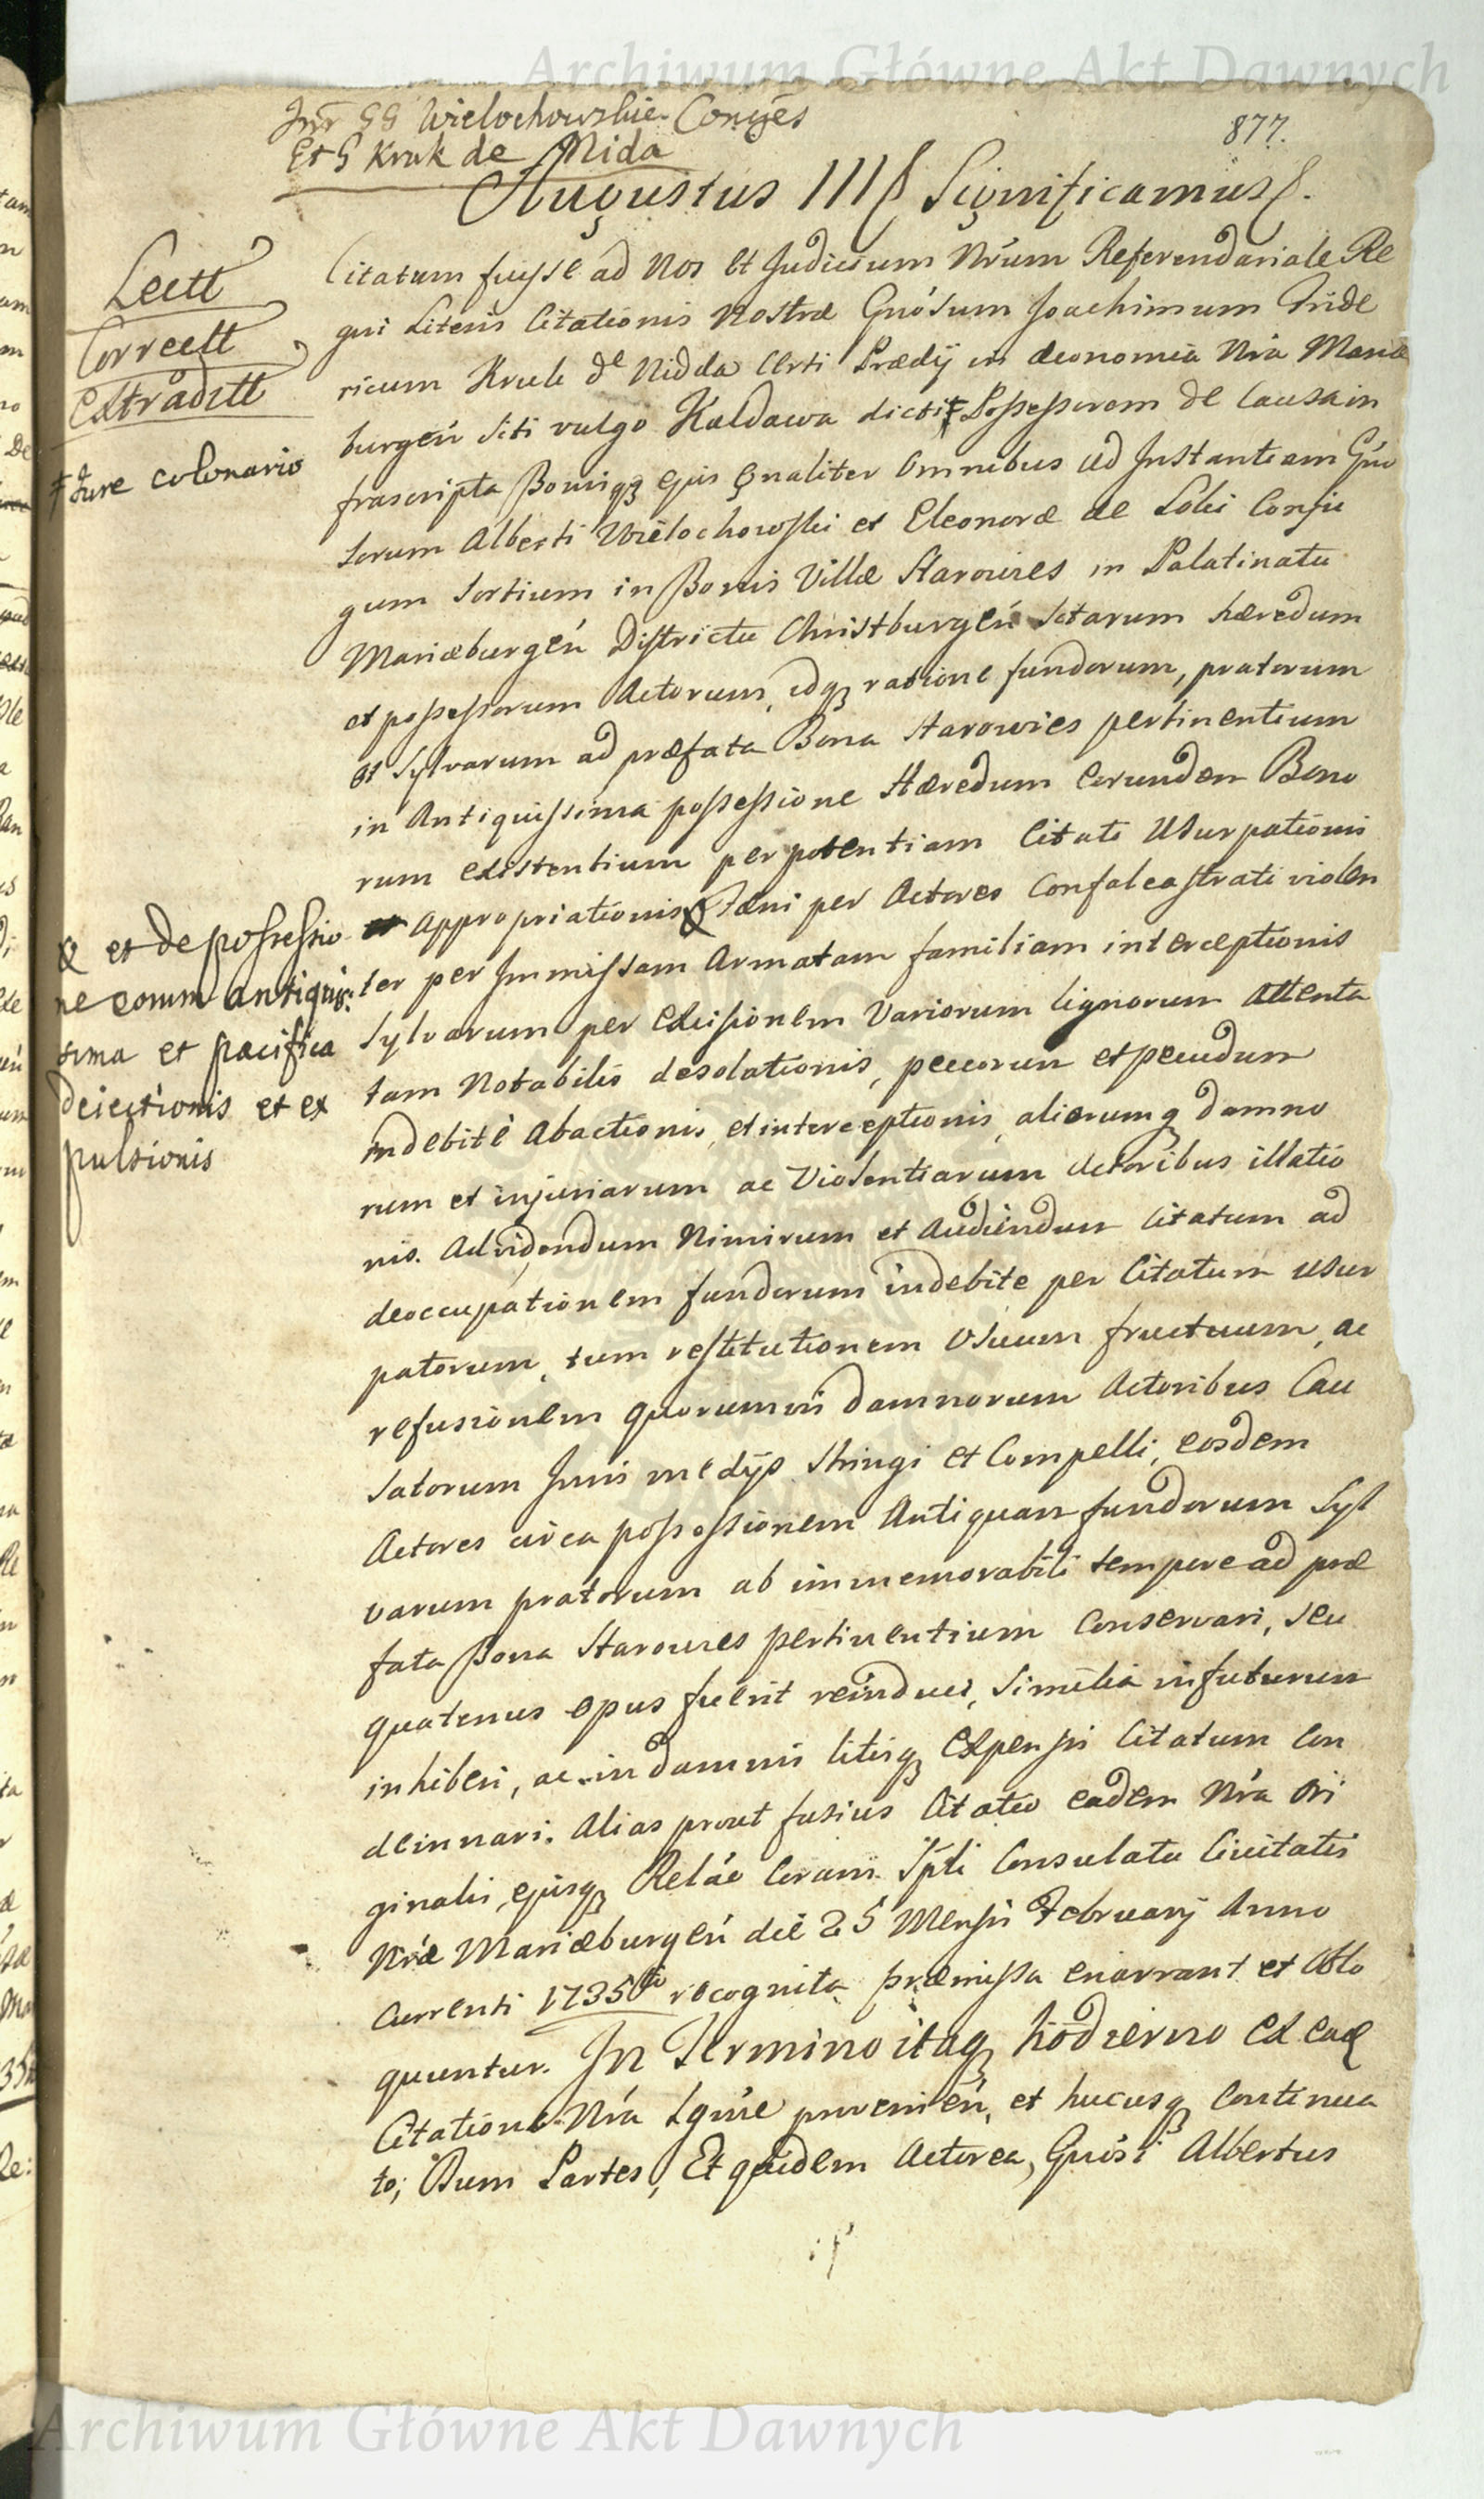 Archiwum Główne Akt Dawnych
Inter GG Wielochowskie Conges
Et G Kruk de Nida
877.
Augustus III Significamus
Lectt
Correctt
Extraditt
Citatum fuisse ad Nos et Judicium Nrum Referendariale Re
gni Literis Citationis Nostræ Gnosum Joachimum Fride
ricum Kruk de Nidda Certi Prædij in Œconomia Nra Mariæ
burgen siti vulgo Kaldawa dicti ‡ Possessorem de Causa in
‡ Jure colonario
frascripta Bonisq ejus gnaliter Omnibus ad Instantiam Gno
sorum Alberti Wielochowski et Eleonoræ de Loki Conju
gum Sortium in Bonis Villæ Starowies in Palatinatu
Mariæburgen Districtu Christburgen sitarum hæredum
et possessorum Actorum, idq ratione fundorum, pratorum
et sylvarum ad præfata Bona Starowies pertinentium
in Antiquissima possessione Hæredum Eorundem Bono
rum existentium per potentiam Citati Usurpationis
et Appropriationis Fæni per Actores Confalcastrati violen
et de possessio
ne eorum antiquis:
sima et pacifica
deiectionis et ex
pulsionis
ter per Immissam Armatam familiam interceptionis
Sylvarum per Excisionem Variorum lignorum attenta
tam Notabilis desolationis, pecorum et pecudum
indebitè Abactionis, et interceptionis, aliorumq damno
rum et injuriarum ac Violentiarum Actoribus illatio
nis. Ad videndum Nimirum et Audiendum Citatum ad
deoccupationem fundorum indebite per Citatum Usur
patorum, tum restitutionem Usuum fructuum, ac
refusionem quorumvis damnorum Actoribus Cau
satorum Juris medijs Stringi et Compelli, eosdem
Actores circa possessionem Antiquam fundorum Syl
varum pratorum ab immemorabili tempore ad præ
fata Bona Starowies pertinentium Conservari, seu
quatenus opus fuerit reinduci, Similia in futurum
inhiberi, ac in damnis litisq Expensis Citatum Con
demnari. Alias prout fusius Citatio eadem Nra Ori
ginalis, ejusq Relao Coram Spli Consulatu Civitatis
Nræ Mariæburgen die 25 Mensis February Anno
Currenti 1735to recognita præmissa enarrant et oblo
quuntur. In Termino itaq hodierno Ex ead
Citatione Nra Lgme provenien, et hucusq Continua
to; Dum Partes, Et quidem Actorea, Gnosi Albertus
Archiwum Główne Akt Dawnych